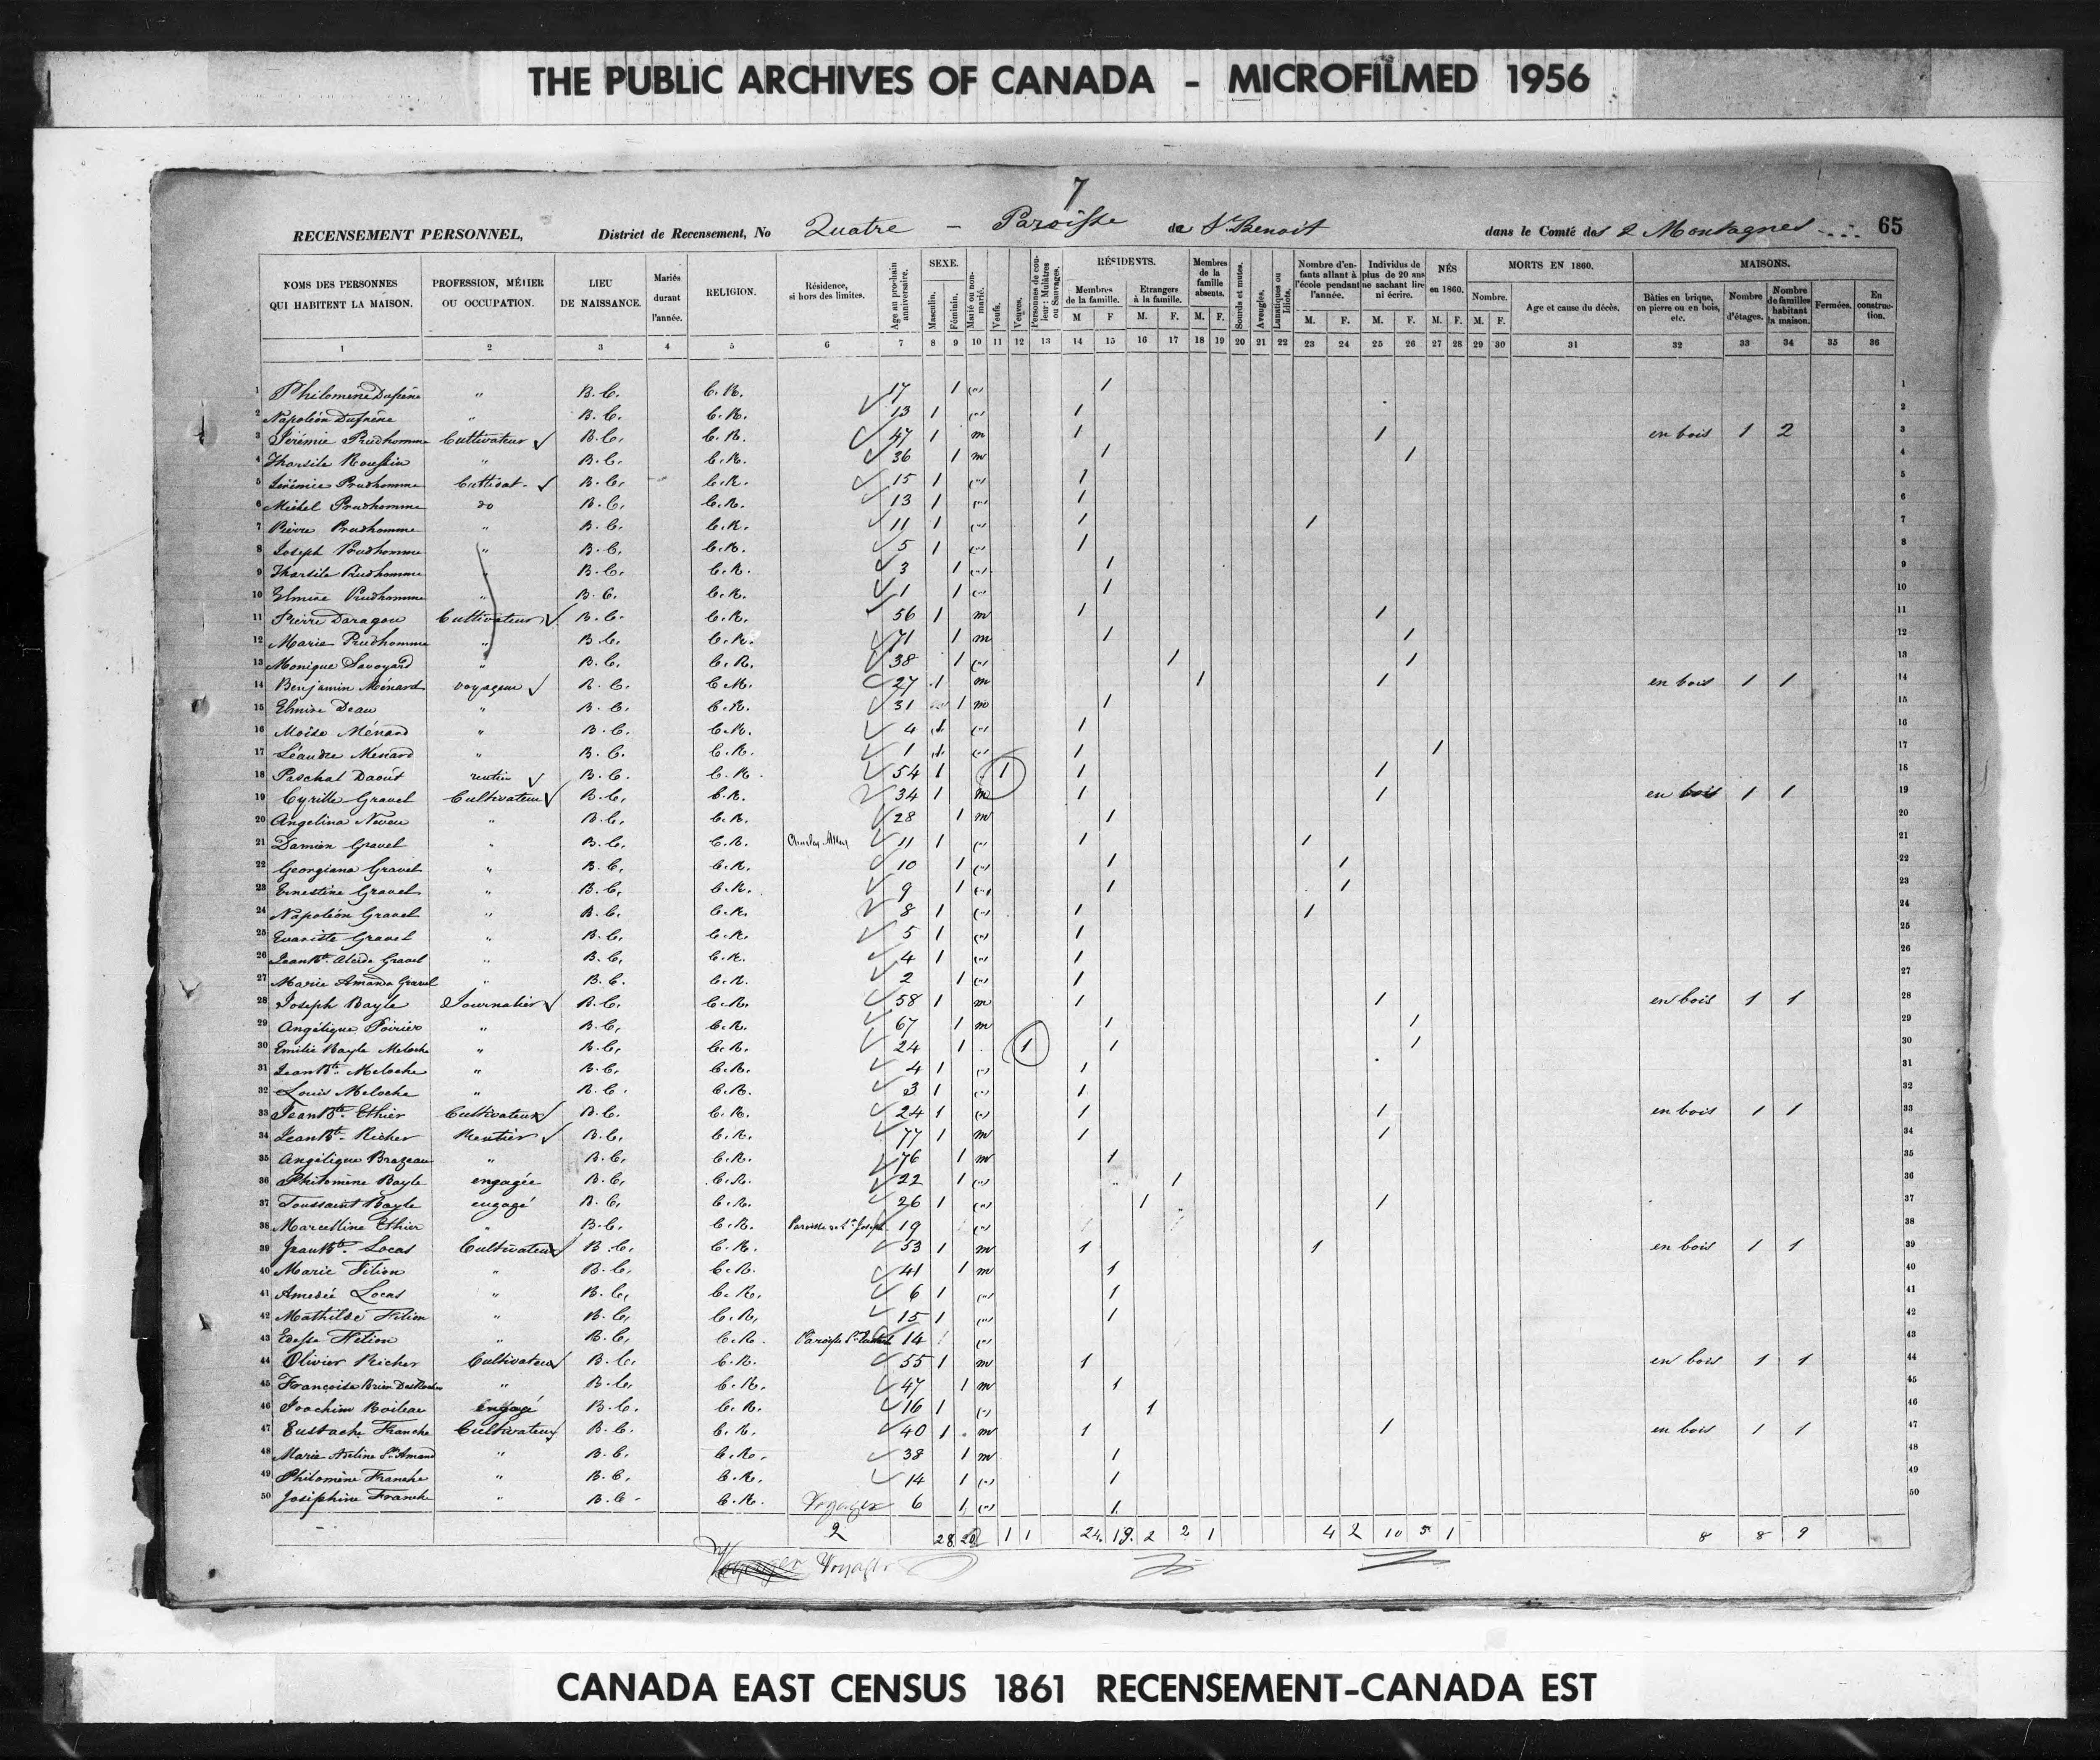 THE PUBLIC ARCHIVES OF CANADA - MICROFILMED 1956
7
RECENSEMENT PERSONNEL, District de Recensement, No Quatre - Paroisse de St Benoit dans le Comté des 2 Montagnes 65
NOMS DES PERSONNES QUI HABITENT LA MAISON. PROFESSION, MÉTIER OU OCCUPATION. LIEU DE NAISSANCE. Mariés durant l'année. RELIGION. Résidence, si hors des limites. Age au prochain anniversaire. SEXE. Masculin. Féminin. Marié ou non-marié. Veufs. Veuves. Personnes de couleur: Mulâtres ou Sauvages. RÉSIDENTS. Membres de la famille. M F Etrangers à la famille. M. F. Membres de la famille absents. M. F. Sourds et muets. Aveugles. Lunatiques ou Idiots. Nombre d'enfants allant à l'école pendant l'année. M. F. Individus de plus de 20 ans ne sachant lire ni écrire. M. F. NÉS en 1860. M. F. MORTS EN 1860. Nombre. M. F. Age et cause du décès. MAISONS. Bâties en brique, en pierre ou en bois, etc. Nombre d'étages. Nombre de familles habitant la maison. Fermées. En construction.
1 2 3 4 5 6 7 8 9 10 11 12 13 14 15 16 17 18 19 20 21 22 23 24 25 26 27 28 29 30 31 32 33 34 35 36
1 Philomène Dufrène " B.C. C.R. 17 1 (") 1 1
2 Napoléon Dufrène " B.C. C.R. 13 1 (") 1 2
3 Jérémie Prudhomme Cultivateur B.C. C.R. 47 1 m 1 1 en bois 1 2 3
4 Tharsile " B.C. C.R. 36 1 m 1 1 4
5 Jérémie Prudhomme Cultivat. B.C. C.R. 15 1 (") 1 5
6 Michel Prudhomme do B.C. C.R. 13 1 (") 1 6
7 Pierre Prudhomme " B.C. C.R. 11 1 (") 1 1 7
8 Joseph Prudhomme " B.C. C.R. 5 1 (") 1 8
9 Tharsile Prudhomme " B.C. C.R. 3 1 (") 1 9
10 Elmire Prudhomme " B.C. C.R. 1 1 (") 1 10
11 Pierre Daragon Cultivateur B.C. C.R. 56 1 m 1 1 11
12 Marie Prudhomme " B.C. C.R. 71 1 m 1 1 12
13 Monique Savoyard " B.C. C.R. 38 1 (") 1 1 13
14 Benjamin Ménard voyageur B.C. C.R. 27 1 m 1 1 en bois 1 1 14
15 Elmire Deau " B.C. C.R. 31 1 m 1 15
16 Moïse Ménard " B.C. C.R. 4 1 (") 1 16
17 Léandre Ménard " B.C. C.R. 1 1 (") 1 1 17
18 Paschal Daoût rentier B.C. C.R. 54 1 1 1 1 18
19 Cyrille Gravel Cultivateur B.C. C.R. 34 1 m 1 1 en bois 1 1 19
20 Angelina Neveu " B.C. C.R. 28 1 m 1 20
21 Damien Gravel " B.C. C.R. 11 1 (") 1 1 21
22 Georgiana Gravel " B.C. C.R. 10 1 (") 1 1 22
23 Ernestine Gravel " B.C. C.R. 9 1 (") 1 1 23
24 Napoléon Gravel " B.C. C.R. 8 1 (") 1 1 24
25 Evariste Gravel " B.C. C.R. 5 1 (") 1 25
26 Jean Bte. Alcide Gravel " B.C. C.R. 4 1 (") 1 26
27 Marie Amanda Gravel " B.C. C.R. 2 1 (") 1 27
28 Joseph Bayle Journalier B.C. C.R. 58 1 m 1 1 en bois 1 1 28
29 Angélique Poirier " B.C. C.R. 67 1 m 1 1 29
30 Emilie Bayle Meloche " B.C. C.R. 24 1 1 1 1 30
31 Jean Bte. Meloche " B.C. C.R. 4 1 (") 1 31
32 Louis Meloche " B.C. C.R. 3 1 (") 1 32
33 Jean Bte. Ethier Cultivateur B.C. C.R. 24 1 (") 1 1 en bois 1 1 33
34 Jean Bte. Richer Rentier B.C. C.R. 77 1 m 1 1 34
35 Angélique Brazeau " B.C. C.R. 76 1 m 1 35
36 Philomène Bayle engagée B.C. C.R. 22 1 (") 1 36
37 Toussaint Bayle engagé B.C. C.R. 26 1 (") 1 1 37
38 Marcelline Ethier " B.C. C.R. Paroisse de St Joseph 19 (") 38
39 Jean Bte. Locas Cultivateur B.C. C.R. 53 1 m 1 1 en bois 1 1 39
40 Marie Filion " B.C. C.R. 41 1 m 1 40
41 Amedée Locas " B.C. C.R. 6 1 (") 1 41
42 Mathilde Filion " B.C. C.R. 15 1 (") 1 42
43 Filion " B.C. C.R. Paroisse 14 (") 43
44 Olivier Richer Cultivateur B.C. C.R. 55 1 m 1 en bois 1 1 44
45 Françoise Brien DesRochers " B.C. C.R. 47 1 m 1 45
46 Joachim Boileau engagé B.C. C.R. 16 1 (") 1 46
47 Eustache Franche Cultivateur B.C. C.R. 40 1 m 1 1 en bois 1 1 47
48 Marie Adeline St. Amand " B.C. C.R. 38 1 m 1 48
49 Philomène Franche " B.C. C.R. 14 1 (") 1 49
50 Joséphine Franche " B.C. C.R. Voyager 6 1 (") 1 50
2 28 20 1 1 24 19 2 2 1 4 2 10 5 1 8 8 9
Voyager
CANADA EAST CENSUS 1861 RECENSEMENT-CANADA EST